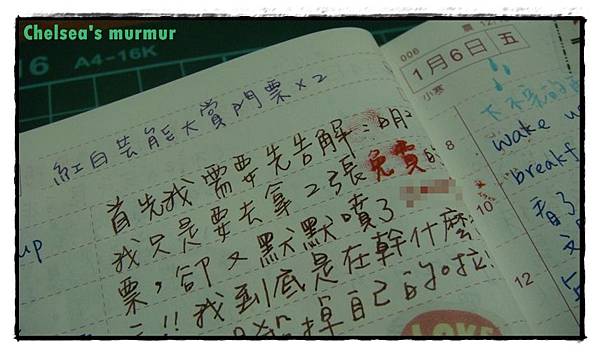 Chelsea's murmur
16 A4-16K
006
1月6日 五
小寒
紅白芸能大賞門票x2
首先我需要先告解：明
我只是要去拿2張免費的
票，卻又默默噴了
!!我到底是在幹什麼
掉自己的啦
up
下不來的
wake u
breakf
看了
8
10
12